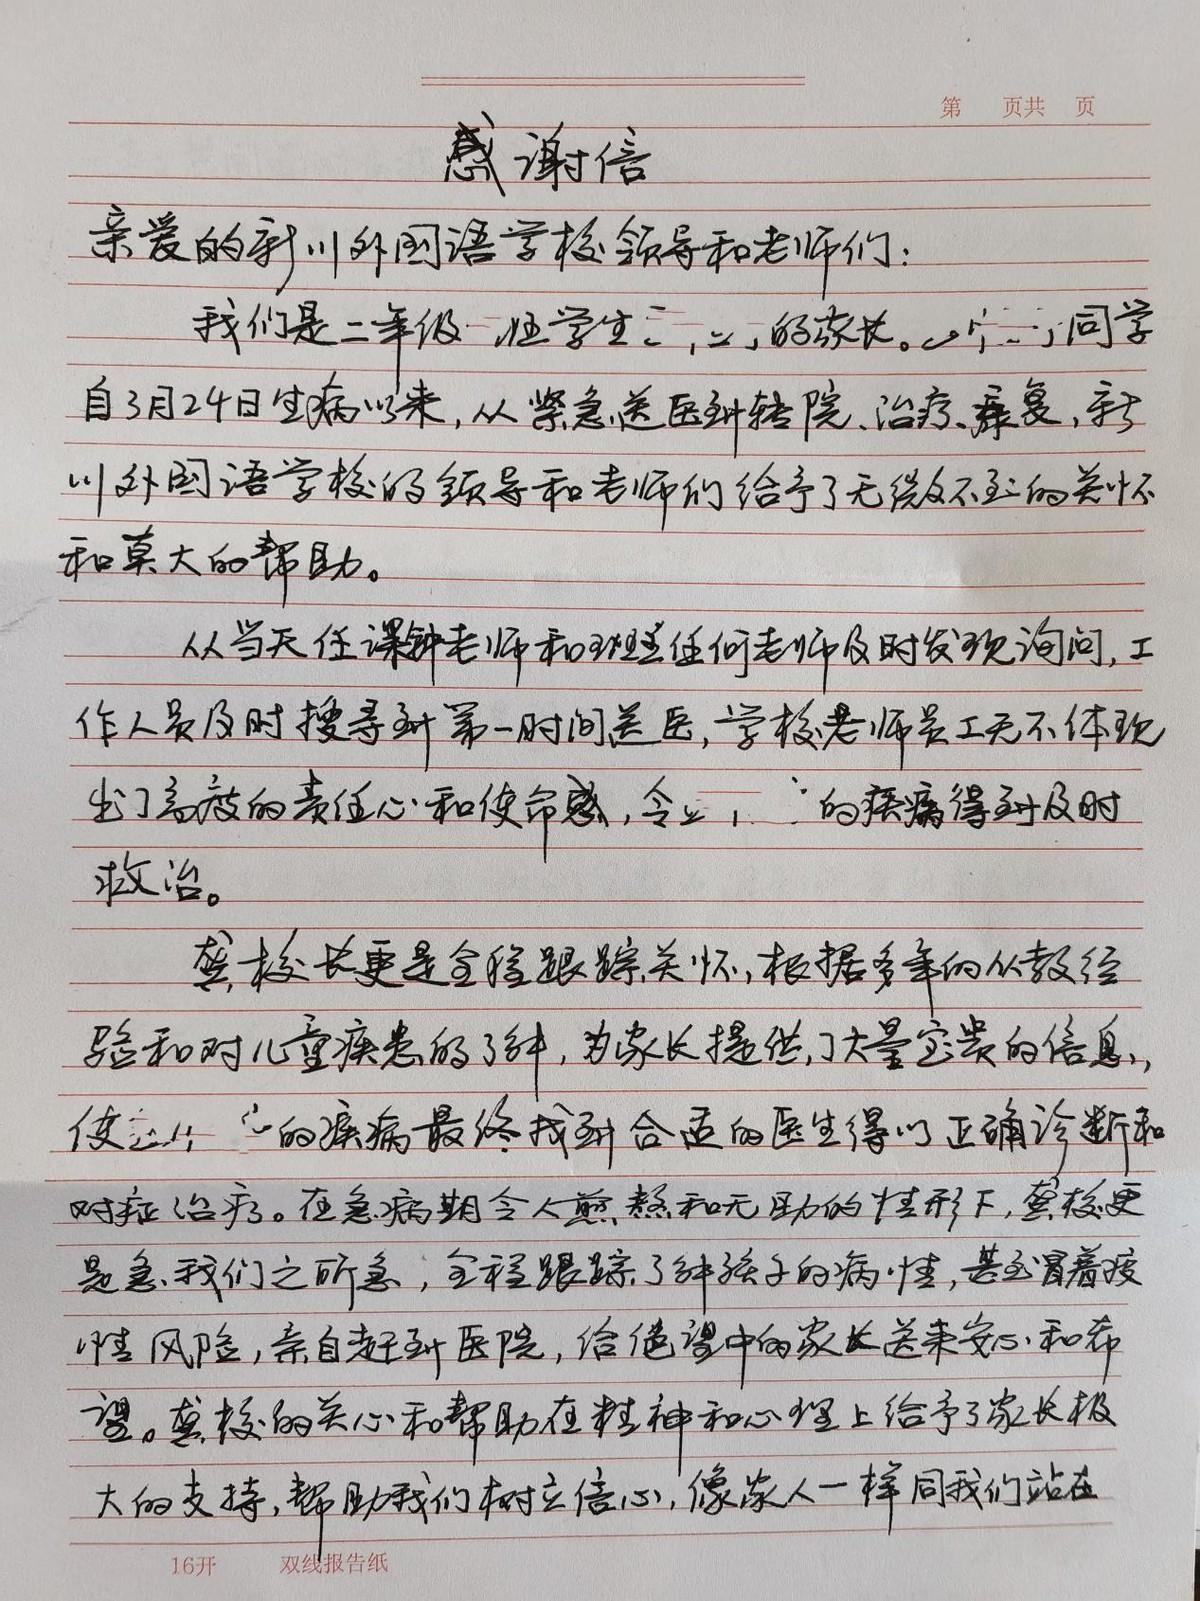 第 页共 页
感谢信
亲爱的新川外国语学校领导和老师们：
我们是二年级 班学生 的家长。 同学
自3月24日生病以来，从紧急送医到转院、治疗、康复，新
川外国语学校的领导和老师们给予了无微不至的关怀
和莫大的帮助。
从当天任课钟老师和班主任何老师及时发现询问，工
作人员及时搜寻到第一时间送医，学校老师员工无不体现
出了高度的责任心和使命感，令 的疾病得到及时
救治。
龚校长更是全程跟踪关怀，根据多年的从教经
验和对儿童疾患的了解，为家长提供了大量宝贵的信息，
使 的疾病最终找到合适的医生得以正确诊断和
对症治疗。在急病期令人煎熬和无助的情形下，龚校更
是急我们之所急，全程跟踪了解孩子的病性，甚至冒着疫
情风险，亲自赶到医院，给绝望中的家长送来安心和希
望。龚校的关心和帮助在精神和心理上给予了家长极
大的支持，帮助我们树立信心，像家人一样同我们站在
16开 双线报告纸